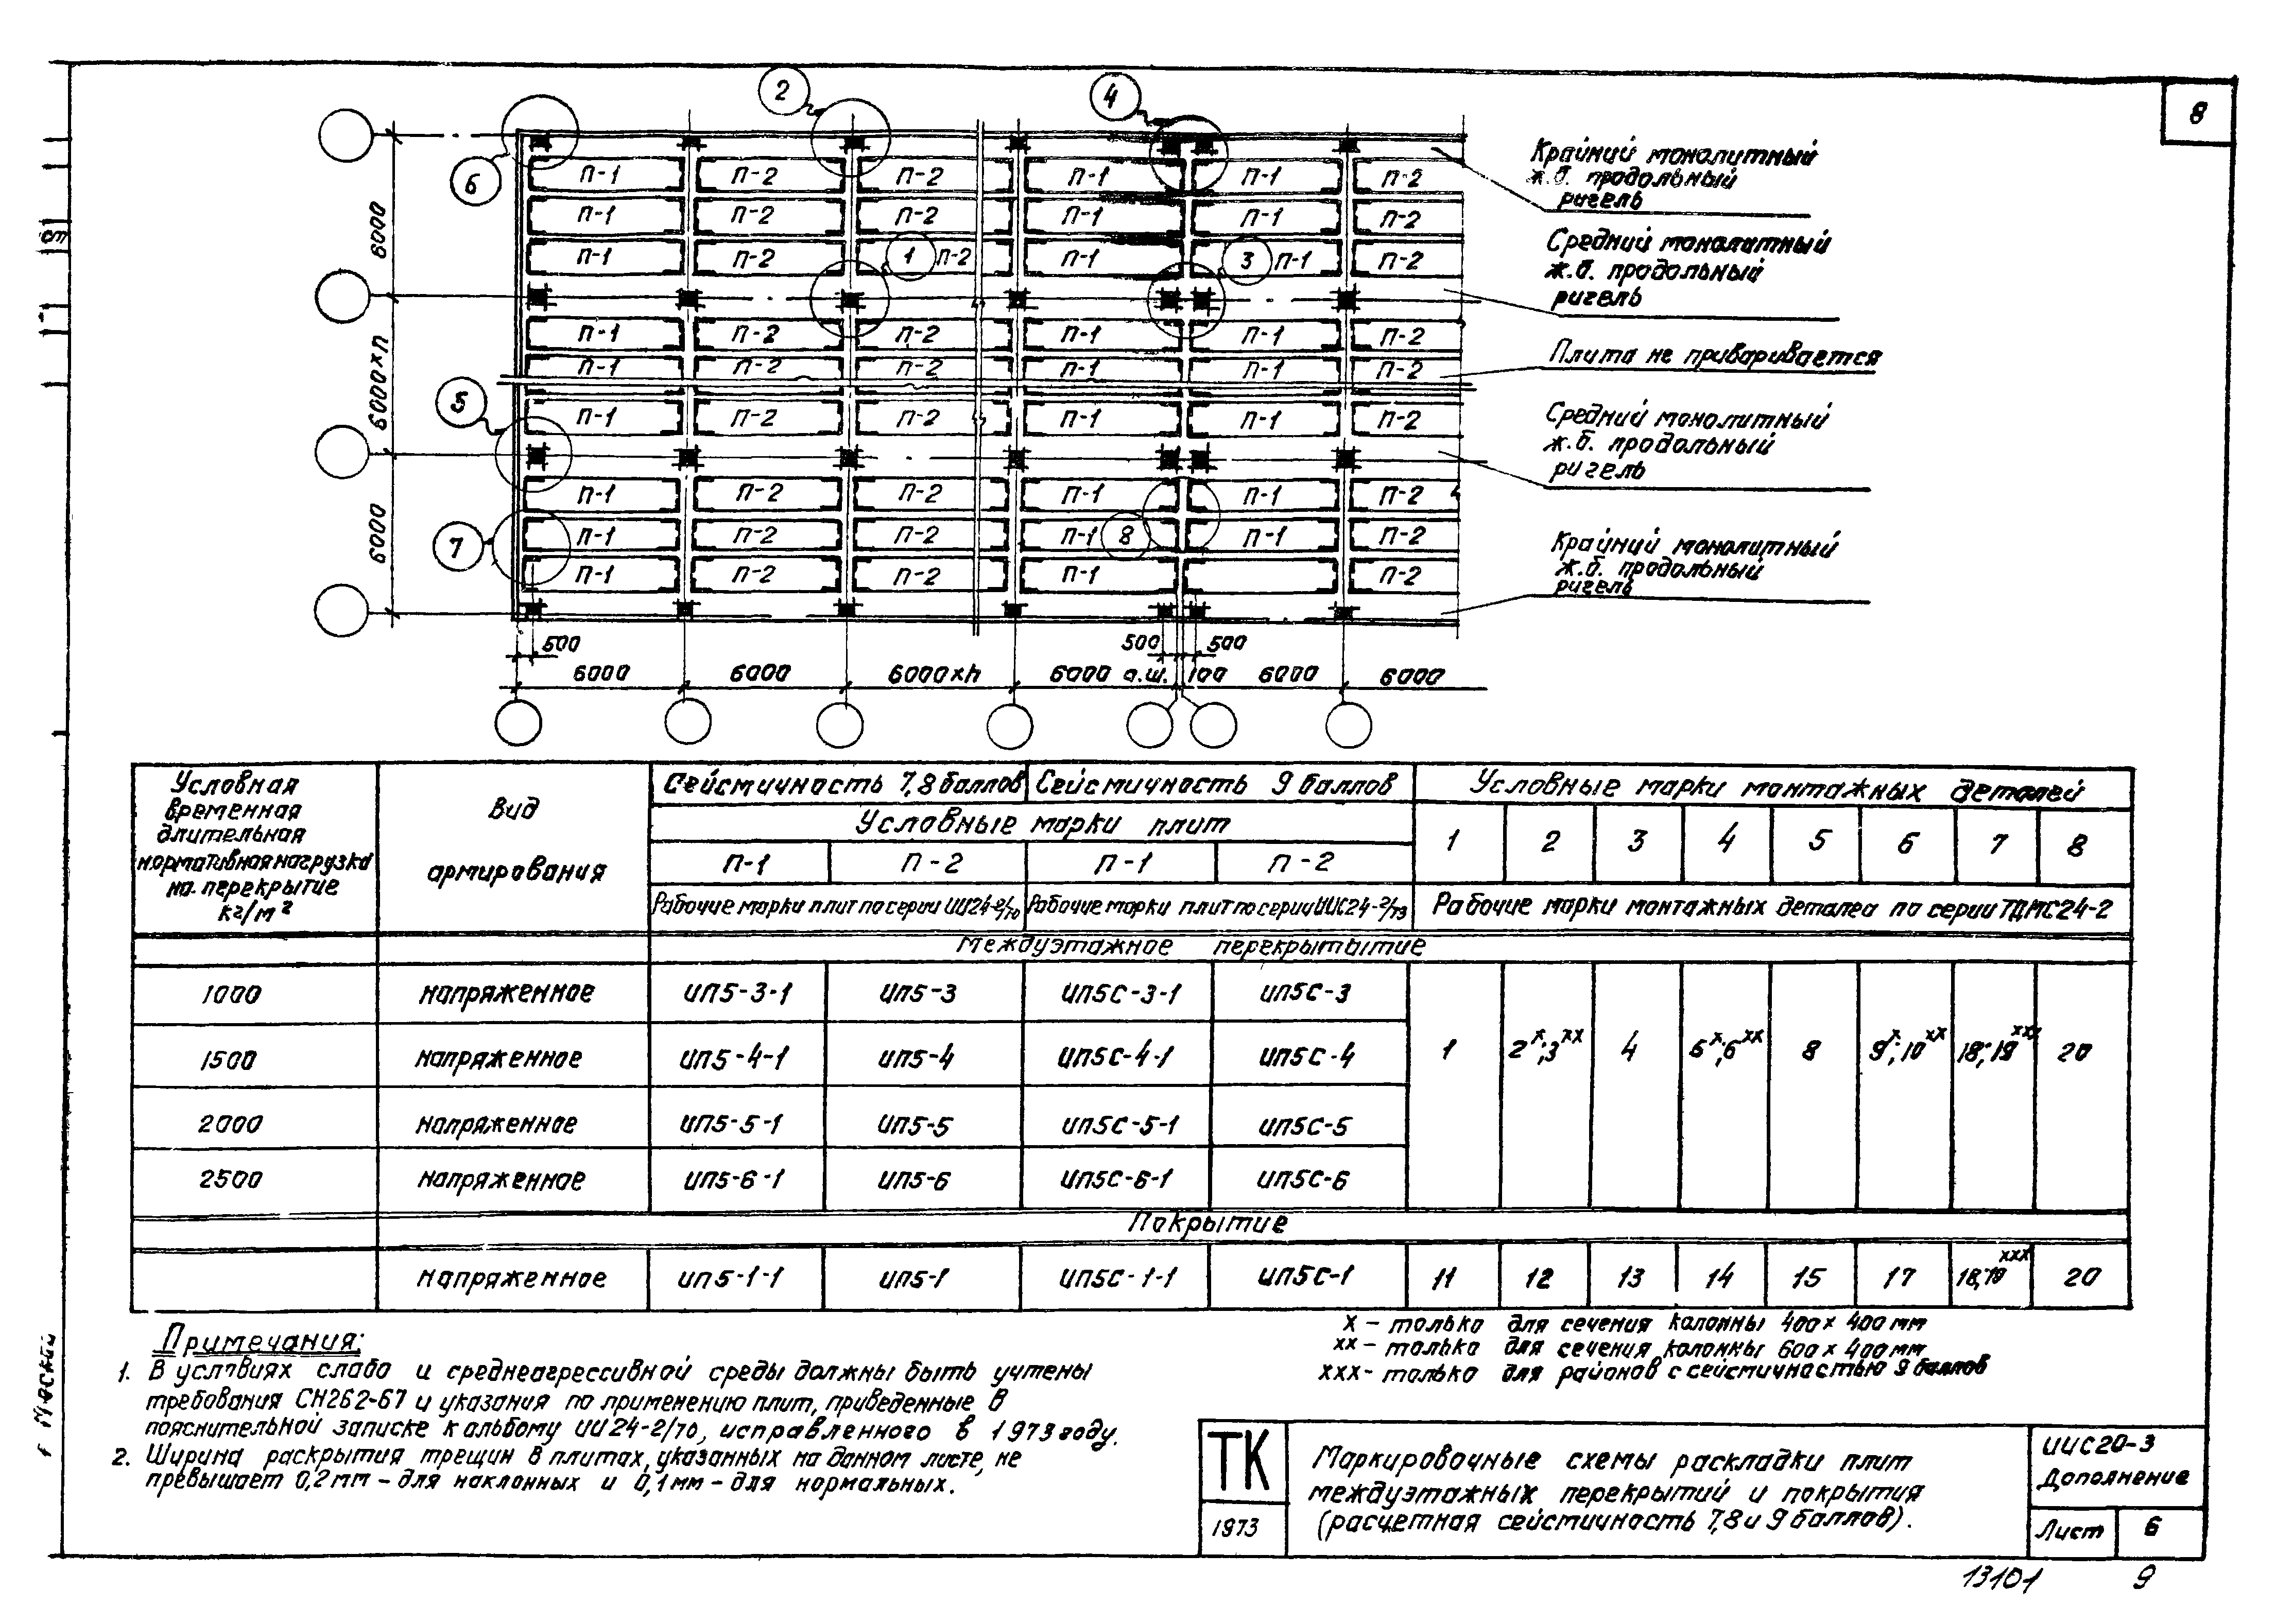 8
2
4
6
П-1 П-2 П-2 П-1 П-1 П-2
П-1 П-2 П-2 П-1 П-1 П-2
П-1 П-2 1 П-2 П-1 3 П-1 П-2
П-1 П-2 П-2 П-1 П-1 П-2
П-1 П-2 П-2 П-1 П-1 П-2
5
П-1 П-2 П-2 П-1 П-1 П-2
П-1 П-2 П-2 П-1 П-1 П-2
7
П-1 П-2 П-2 П-1 8 П-1 П-2
П-1 П-2 П-2 П-1 П-2
6000
6000хп
6000
500 500 500
6000 6000 6000хh 6000 а.ш. 100 6000 6000
Крайний монолитный
ж.б. продольный
ригель
Средний монолитный
ж.б. продольный
ригель
Плита не приваривается
Средний монолитный
ж.б. продольный
ригель
Крайний монолитный
ж.б. продольный
ригель
Условная
временная
длительная
нормативная нагрузка
на перекрытие
кг/м²
Вид
армирования
Сейсмичность 7,8 баллов Сейсмичность 9 баллов
Условные марки плит
П-1 П-2 П-1 П-2
Рабочие марки плит по серии ИИ24-2/70 Рабочие марки плит по серии ИИС24-2/73
Условные марки монтажных деталей
1 2 3 4 5 6 7 8
Рабочие марки монтажных деталей по серии ТДМС24-2
Междуэтажное перекрытытие
1000 напряженное ИП5-3-1 ИП5-3 ИП5С-3-1 ИП5С-3
1500 напряженное ИП5-4-1 ИП5-4 ИП5С-4-1 ИП5С-4 1 2х;3хх 4 6х;6хх 8 9х;10хх 18;19ххх 20
2000 напряженное ИП5-5-1 ИП5-5 ИП5С-5-1 ИП5С-5
2500 напряженное ИП5-6-1 ИП5-6 ИП5С-6-1 ИП5С-6
Покрытие
напряженное ИП5-1-1 ИП5-1 ИП5С-1-1 ИП5С-1 11 12 13 14 15 17 20
х – только для сечения колонны 400х400мм
хх – только для сечения колонны 600х400мм
ххх – только для районов с сейсмичностью 9 баллов
Примечания:
1. В условиях слабо и среднеагрессивной среды должны быть учтены
требования СН262-67 и указания по применению плит, приведенные в
пояснительной записке к альбому ИИ24-2/70, исправленного в 1973 году.
2. Ширина раскрытия трещин в плитах, указанных на данном листе, не
превышает 0,2мм – для наклонных и 0,1мм – для нормальных.
ТК
1973
Маркировочные схемы раскладки плит
междуэтажных перекрытий и покрытия
(расчетная сейсмичность 7,8 и 9 баллов).
ИИС20-3
Дополнение
Лист 6
13101 9